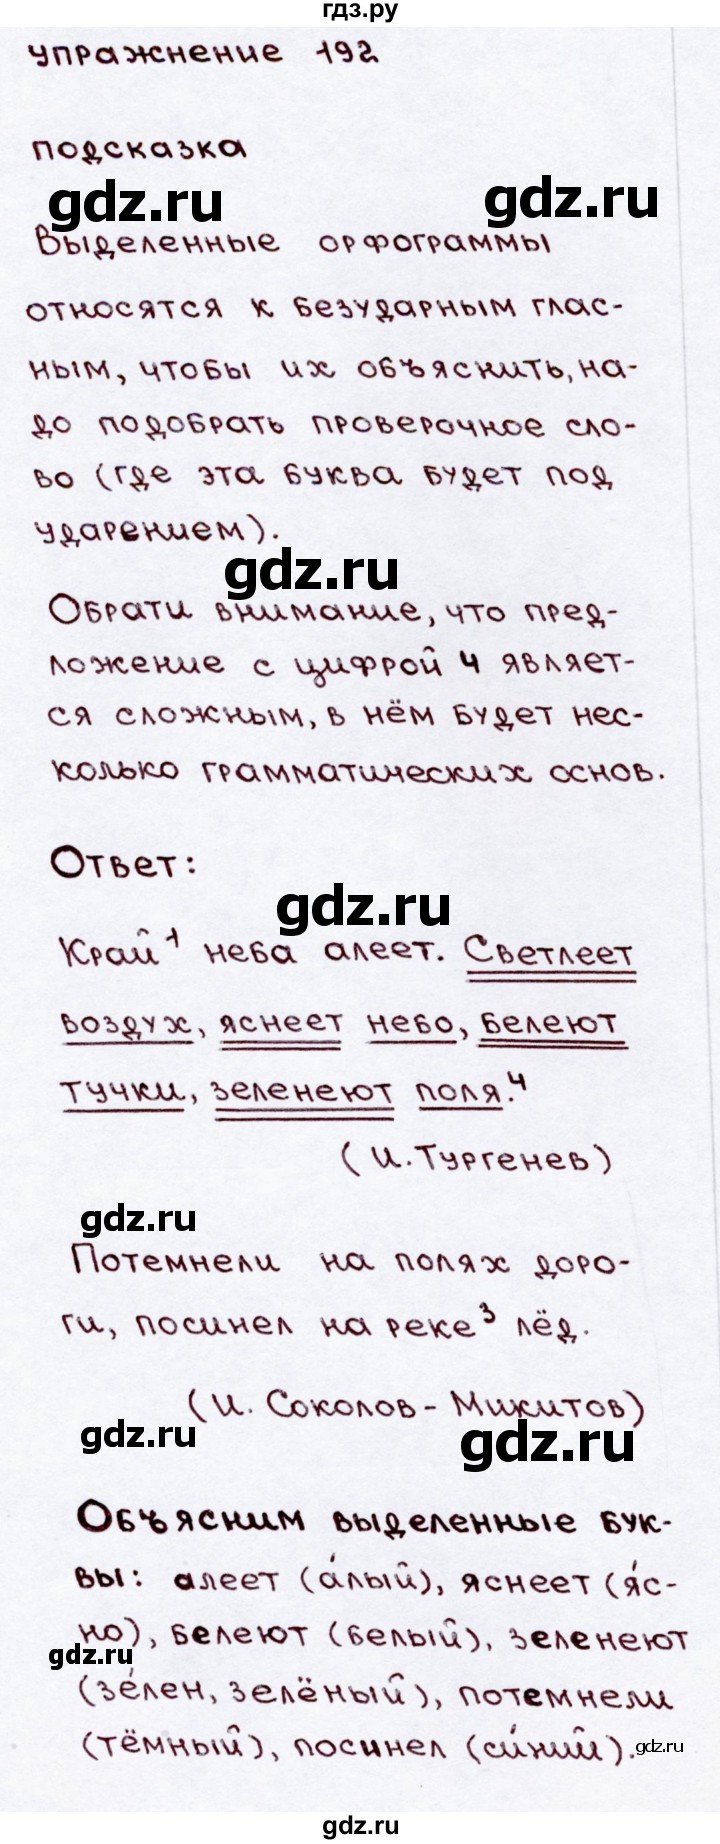 гдз.ру
упражнение 192
подсказка
gdz.ru
gdz.ru
Выделенные орфограммы
относятся к безударным глас-
ным, чтобы их объяснить, на-
до подобрать проверочное сло-
во (где эта буква будет под
ударением).
gdz.ru
Обрати внимание, что пред-
ложение с цифрой 4 являет-
ся сложным, в нём будет нес-
колько грамматических основ.
Ответ:
gdz.ru
Край¹ неба алеет. Светлеет
воздух, яснеет небо, белеют
тучки, зеленеют поля.⁴
(И. Тургенев)
gdz.ru
Потемнели на полях доро-
ги, посинел на реке³ лёд.
(И. Соколов-Микитов)
gdz.ru
gdz.ru
Объясним выделенные бук-
вы: алеет (а́лый), яснеет (я́с-
но), белеют (белый), зеленеют
gdz.ru
(зе́лен, зелёный), потемнели
(тёмный), посинел (си́ний).
gdz.ru
gdz.ru